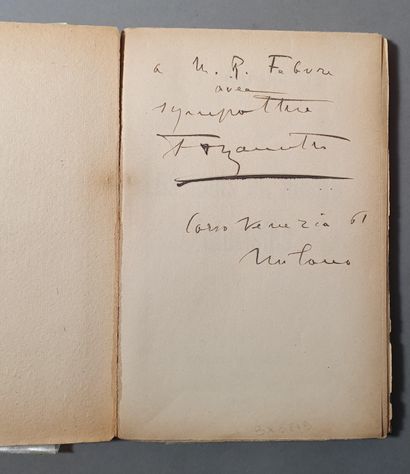 à M. R. Fabure
avec
sympathie
Corso Venezia 61
Milano